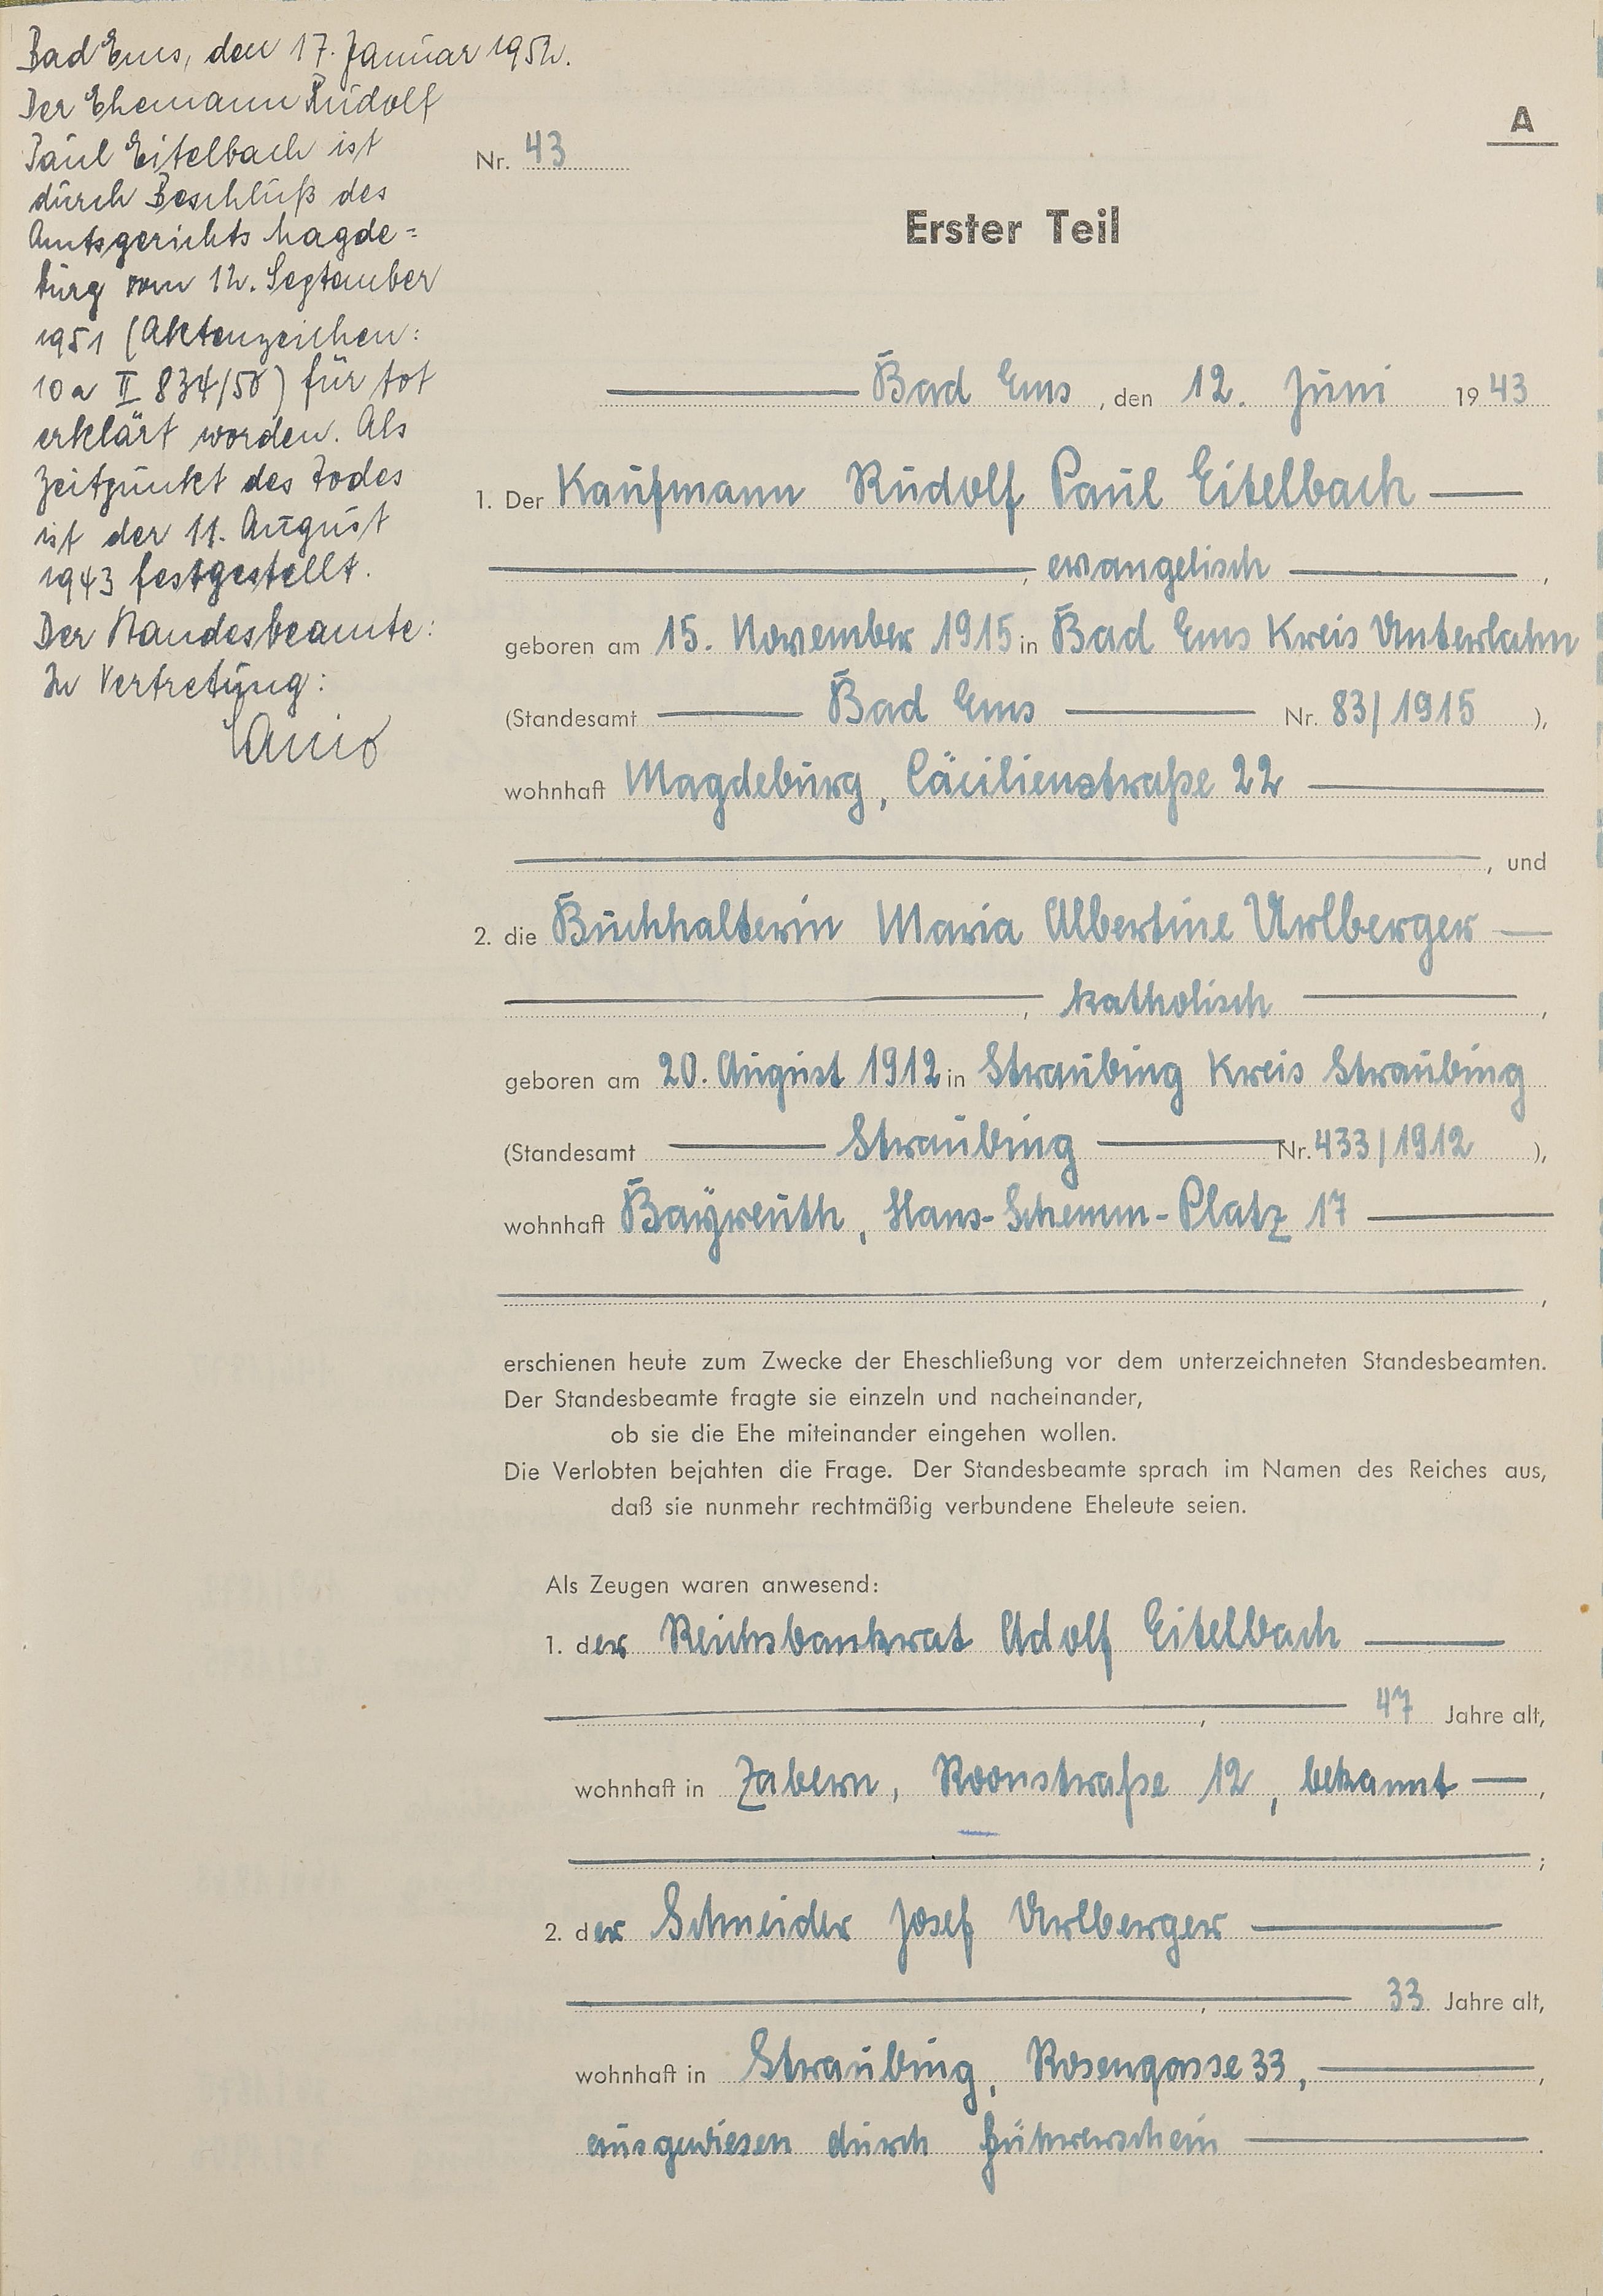 Bad Ems, den 17. Januar 1952.
Der Ehemann Rudolf
Paul Eitelbach ist
durch Beschluß des
Amtsgerichts Magde=
burg vom 12. September
1951 (Aktenzeichen:
10a II 834/50) für tot
erklärt worden. Als
Zeitpunkt des Todes
ist der 11. August
1943 festgestellt.
Der Standesbeamte:
In Vertretung:
A
Nr. 43
Erster Teil
Bad Ems, den 12. Juni 1943
1. Der Kaufmann Rudolf Paul Eitelbach
, evangelisch ,
geboren am 15. November 1915 in Bad Ems Kreis Unterlahn
(Standesamt Bad Ems Nr. 83/1915 ),
wohnhaft Magdeburg, Cäcilienstraße 22
, und
2. die Buchhalterin Maria Albertine Urlberger
, katholisch ,
geboren am 20. August 1912 in Straubing Kreis Straubing
(Standesamt Straubing Nr. 433/1912 ),
wohnhaft Bayreuth, Hans-Schemm-Platz 17
,
erschienen heute zum Zwecke der Eheschließung vor dem unterzeichneten Standesbeamten.
Der Standesbeamte fragte sie einzeln und nacheinander,
ob sie die Ehe miteinander eingehen wollen.
Die Verlobten bejahten die Frage. Der Standesbeamte sprach im Namen des Reiches aus,
daß sie nunmehr rechtmäßig verbundene Eheleute seien.
Als Zeugen waren anwesend:
1. der Reichsbankrat Adolf Eitelbach
, 47 Jahre alt,
wohnhaft in Zabern, Roonstraße 12, bekannt ,
;
2. der Schneider Josef Urlberger
, 33 Jahre alt,
wohnhaft in Straubing, Rosengasse 33, ,
ausgewiesen durch Führerschein .